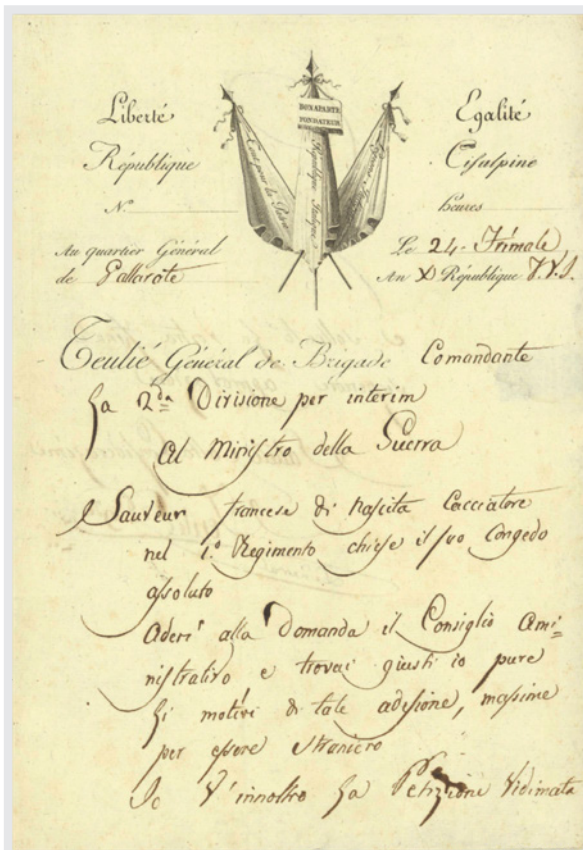 Liberté
Egalité
BONAPARTE
FONDATEUR
République
Cisalpine
République Italique
N.
heures
Au quartier Général
de Gallarate
Le 24. Frimale
An X République V.S.
Teulié Général de Brigade Comandante
la 2da Divisione per interim
Al Ministro della Guerra
Sauveur francese di nascita Cacciatore
nel 1.º Regimento chiese il suo Congedo
assoluto
Aderì alla Domanda il Consiglio Ami=
nistrativo e trovai giusti io pure
li motivi di tale adesione, massime
per essere straniero
Io V'innoltro la Petizione vidimata